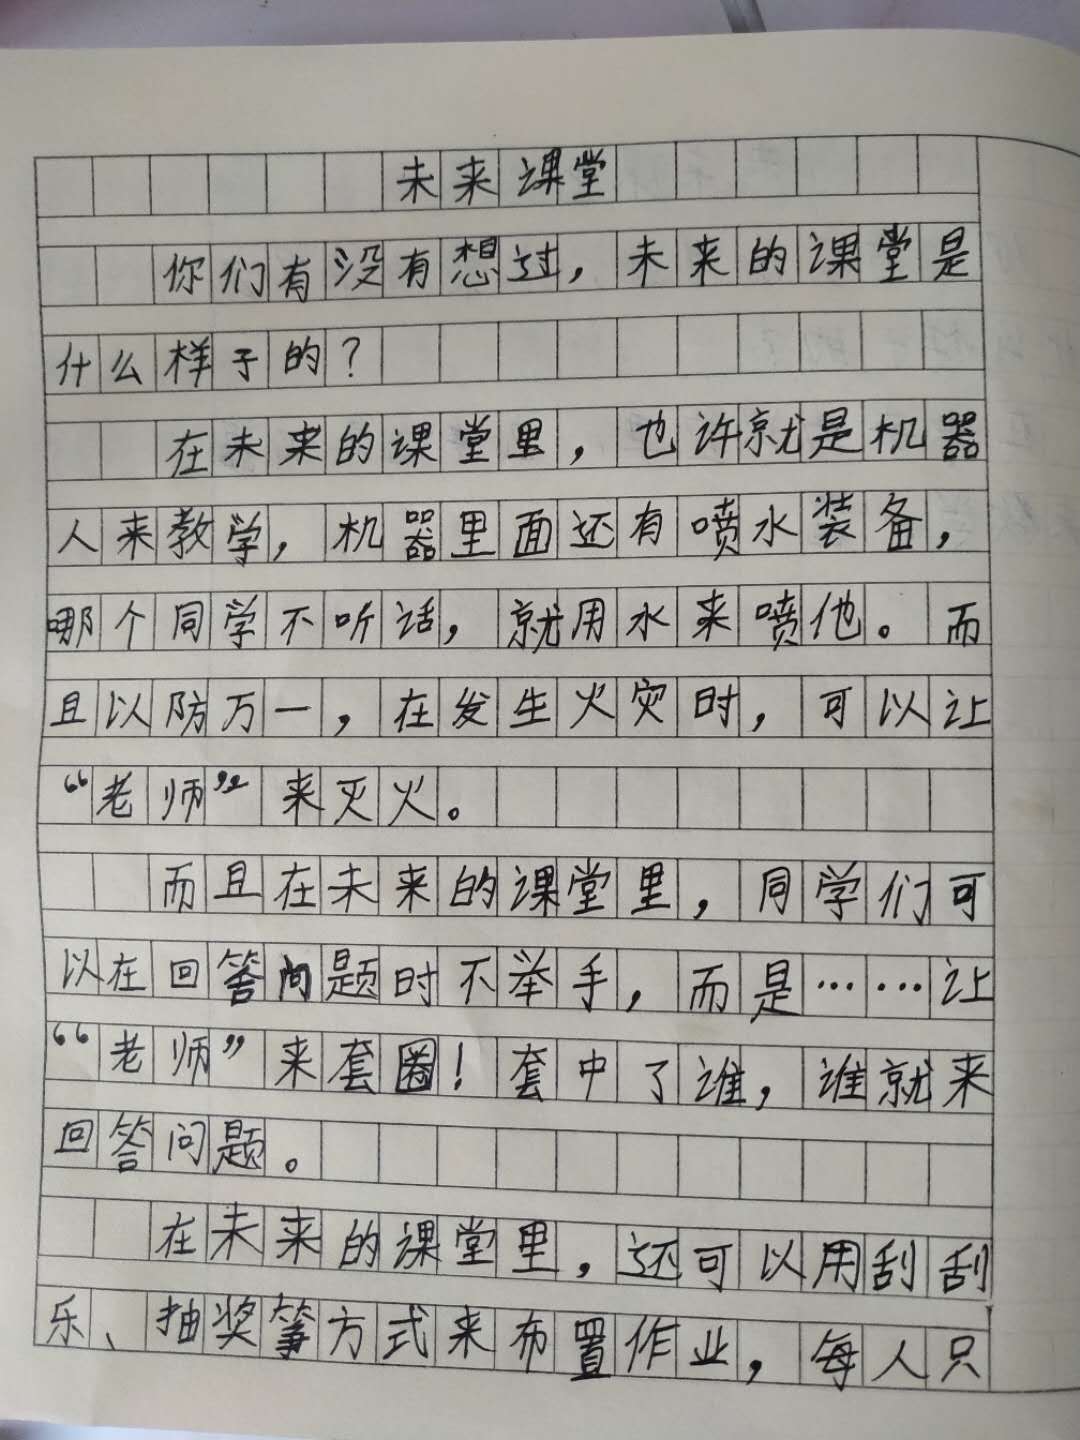 未来课堂
你们有没有想过，未来的课堂是
什么样子的？
在未来的课堂里，也许就是机器
人来教学，机器里面还有喷水装备，
哪个同学不听话，就用水来喷他。而
且以防万一，在发生火灾时，可以让
“老师”来灭火。
而且在未来的课堂里，同学们可
以在回答问题时不举手，而是……让
“老师”来套圈！套中了谁，谁就来
回答问题。
在未来的课堂里，还可以用刮刮
乐、抽奖等方式来布置作业，每人只